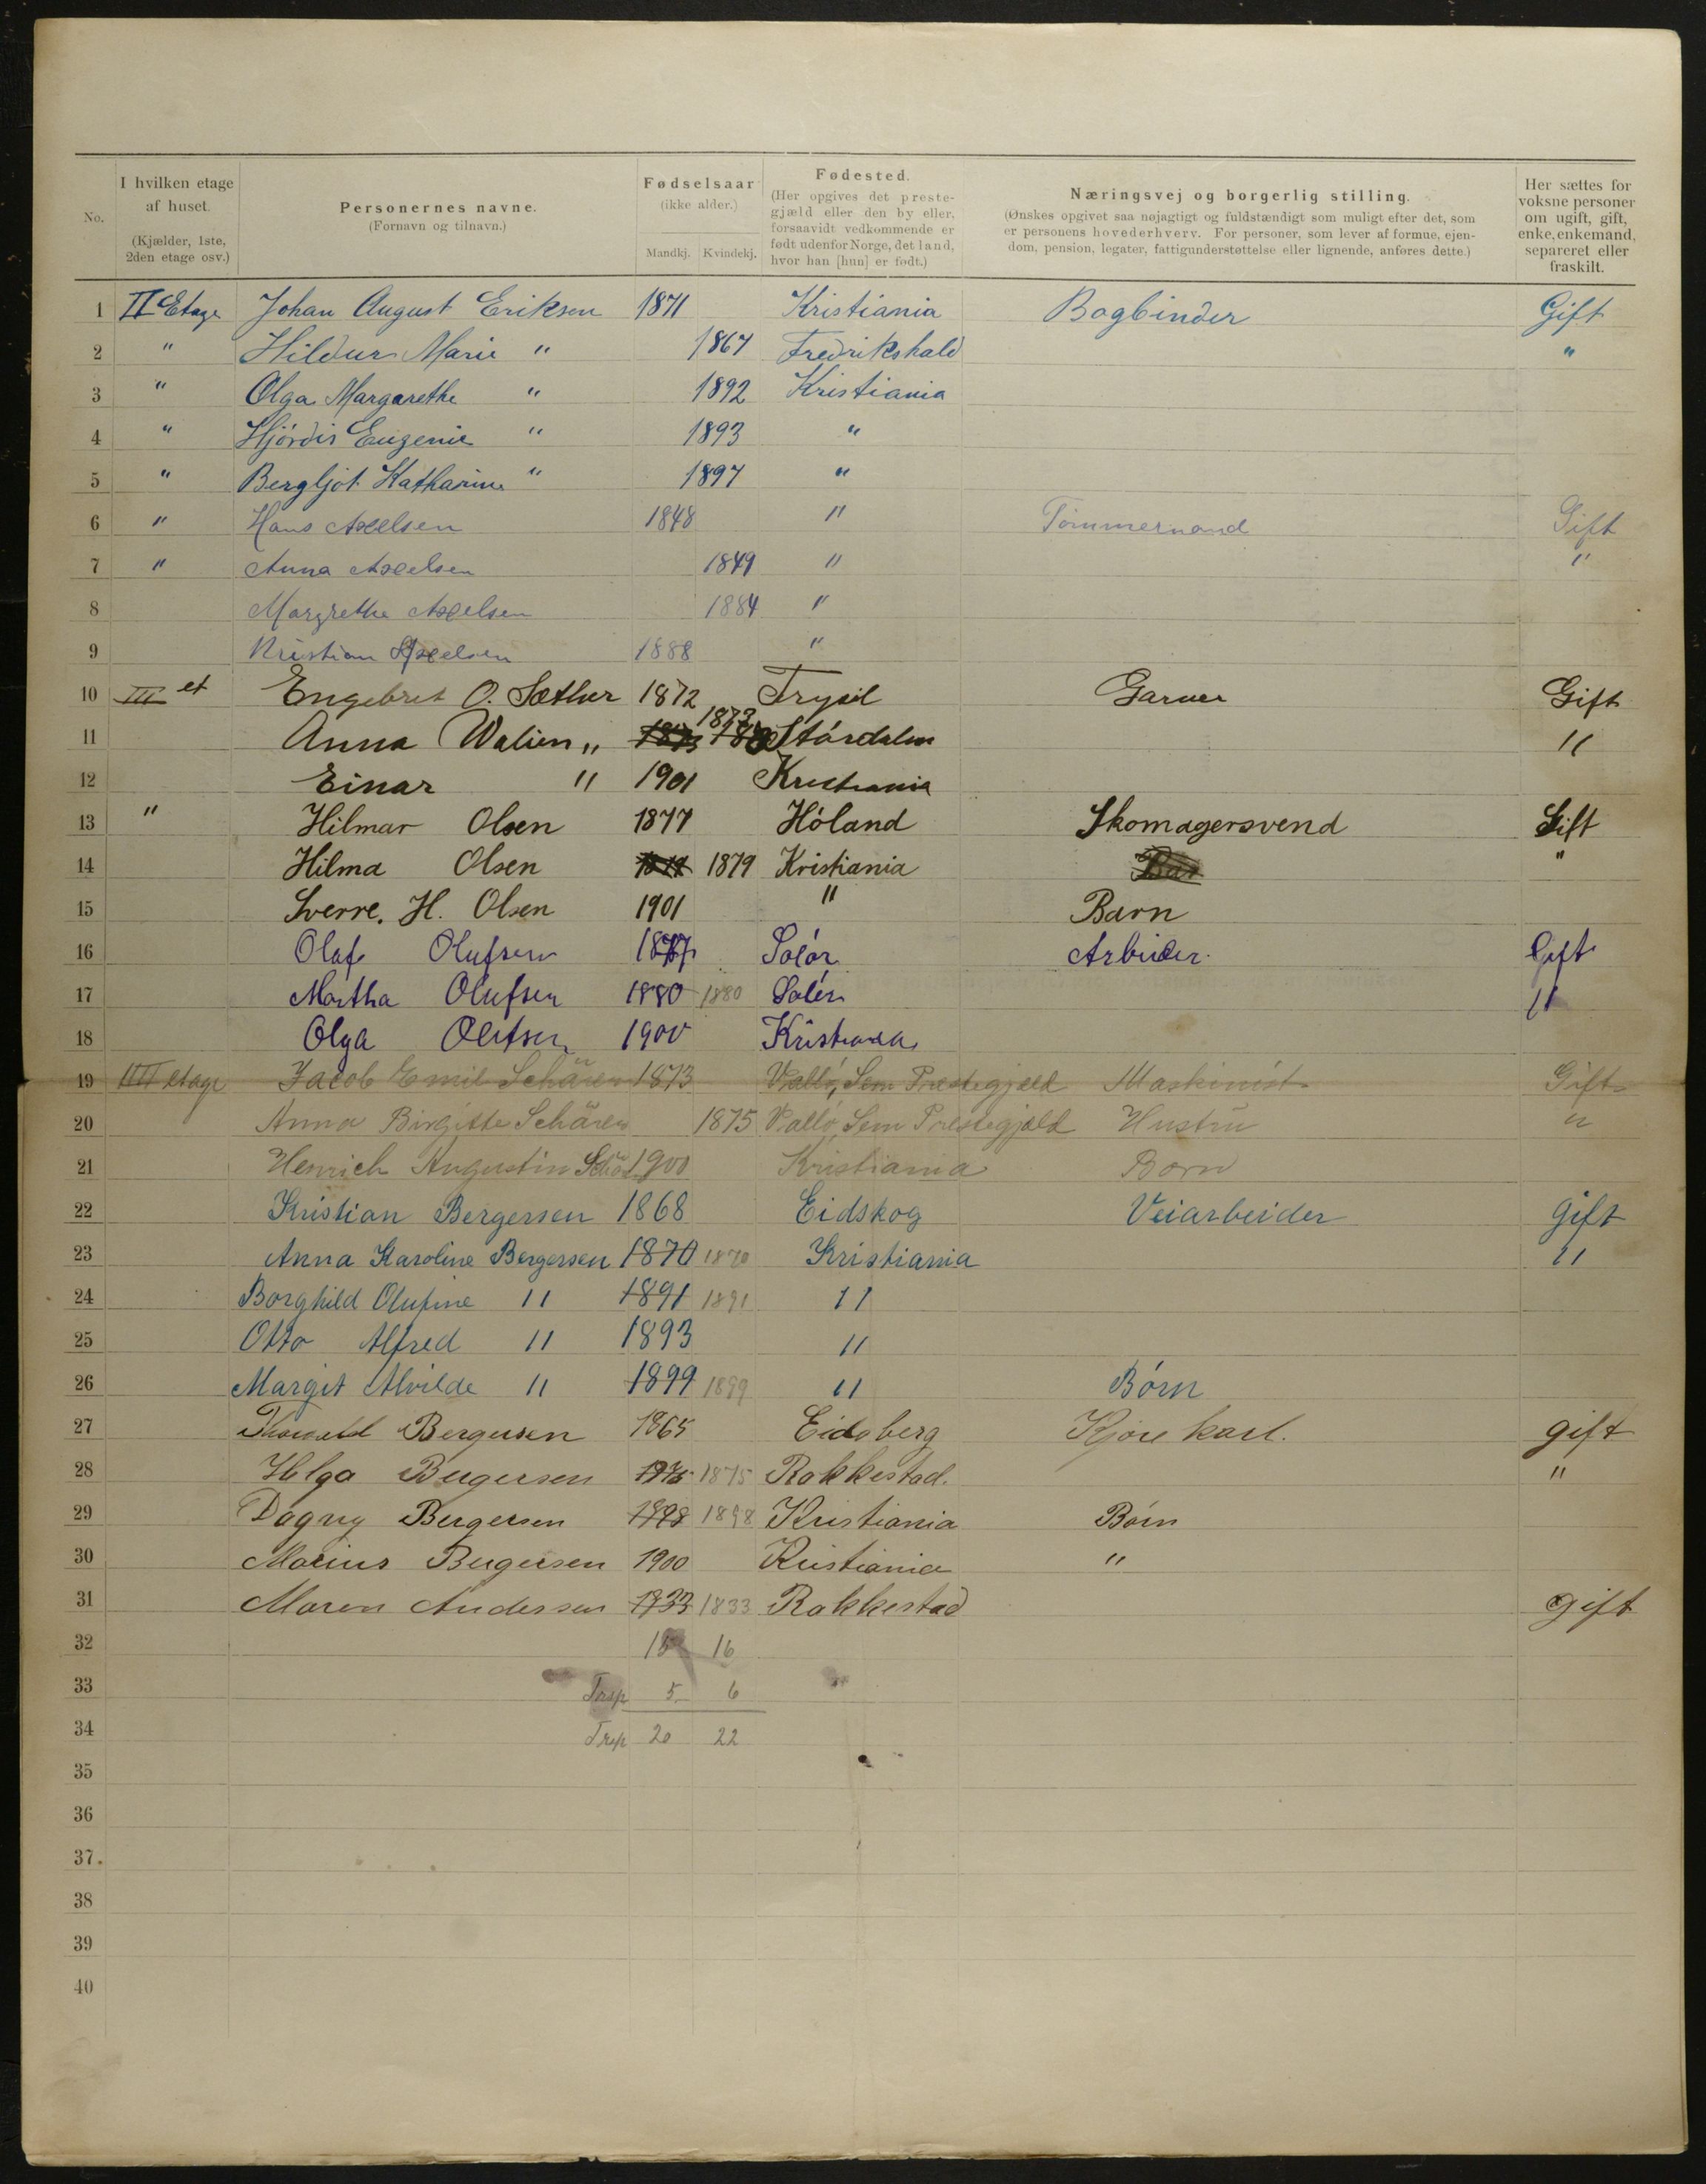 No. | I hvilken etage af huset. (Kjælder, 1ste, 2den etage osv.) | Personernes navne. (Fornavn og tilnavn.) | Fødselsaar (ikke alder.) Mandkj. Kvindekj. | Fødested. (Her opgives det prestegjæld eller den by eller, forsaavidt vedkommende er født udenfor Norge, det land, hvor han [hun] er født.) | Næringsvej og borgerlig stilling. (Ønskes opgivet saa nøjagtigt og fuldstændigt som muligt efter det, som er personens hovederhverv. For personer, som lever af formue, ejendom, pension, legater, fattigunderstøttelse eller lignende, anføres dette.) | Her sættes for voksne personer om ugift, gift, enke, enkemand, separeret eller fraskilt.
1 II Etage Johan August Eriksen 1871 Kristiania Bogbinder Gift
2 " Hildur Marie " 1867 Fredrikshald "
3 " Olga Margarethe " 1892 Kristiania
4 " Hjórdis Eugenie " 1893 "
5 " Bergljot Katharine " 1897 "
6 " Hans Axelsen 1848 " Tömmermand Gift
7 " Anna Axelsen 1849 " "
8 Margrethe Axelsen 1884 "
9 Kristian Axelsen 1888 "
10 III et Engebret O. Sæther 1872 Trysil Garver Gift
11 Anna Walien " 1873 Stórdalen "
12 Einar " 1901 Kristiania
13 " Hilmar Olsen 1877 Hóland Skomagersvend Gift
14 Hilma Olsen 1879 Kristiania "
15 Sverre. H. Olsen 1901 " Barn
16 Olaf Olufsen 1877 Solór Arbeider. Gift
17 Martha Olufsen 1880 1880 Solór "
18 Olga Olufsen 1900 Kristiania
19 IIII etage Jacob Emil Schären 1873 Valló, Sem Præstegjæld Maskinist Gift
20 Anna Birgitte Schären 1875 Valló, Sem Præstegjæld Hustru "
21 Henrich Augustin Schä 1900 Kristiania Barn
22 Kristian Bergersen 1868 Eidskog Veiarbeider gift
23 Anna Karoline Bergersen 1870 1870 Kristiania "
24 Borghild Olufine " 1891 1891 "
25 Otto Alfred " 1893 "
26 Margit Alvilde " 1899 1899 " Börn
27 Thorvald Bergersen 1865 Eidsberg Kjörekarl. gift
28 Helga Bergersen 1875 1875 Rakkestad. "
29 Dagny Bergersen 1898 1898 Kristiania Börn
30 Marius Bergersen 1900 Kristiania "
31 Maren Andersen 1833 1833 Rakkestad gift
32 15 16
33 Trsp 5 6
34 Trsp 20 22
35
36
37.
38
39
40